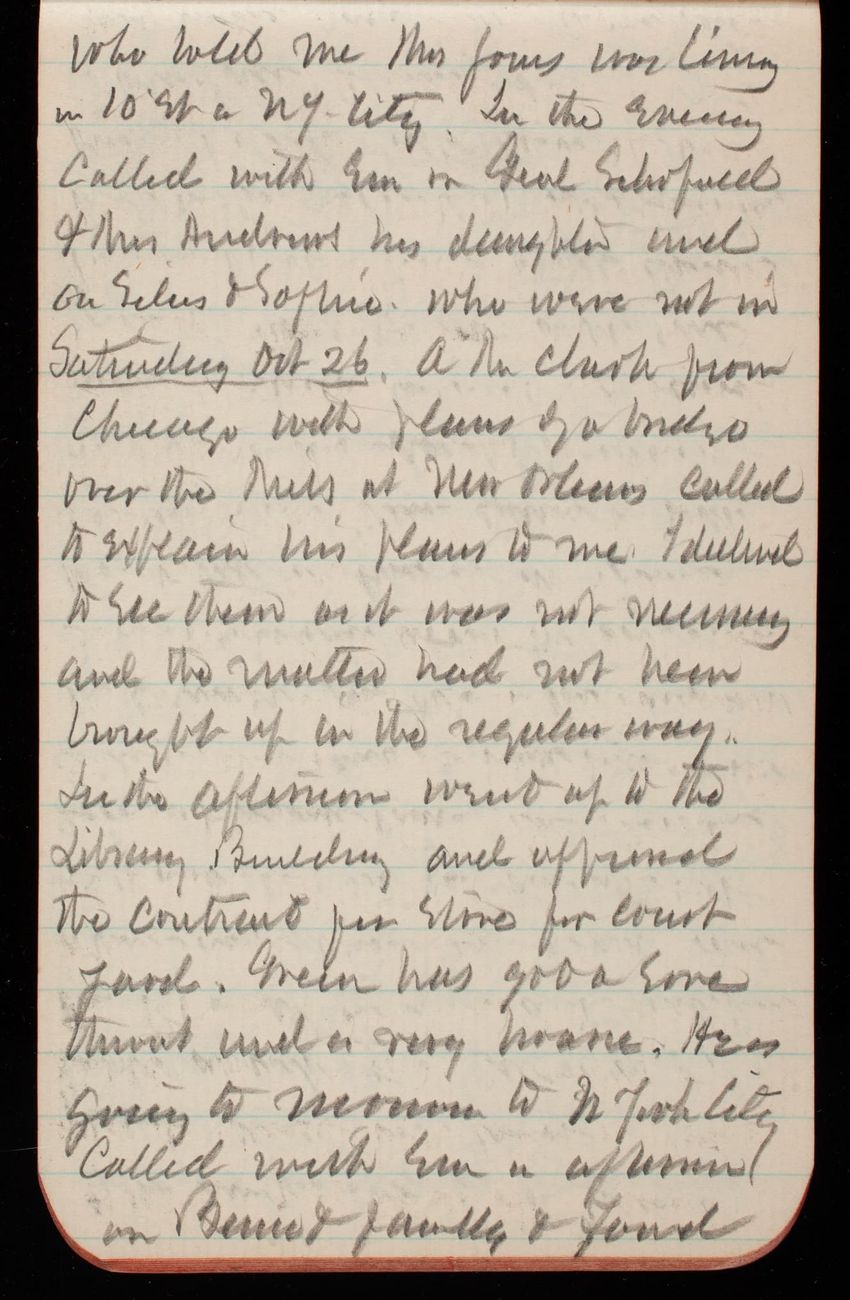 who told me Mrs was living
in 10 St in NY City. In the Evening
Called with Em on Genl Schofield
& Mrs Andrews his daughter and
on Silas & Sophie. who were not in
Saturday Oct 26. A Mr Clark from
Chicago with plans of a bridge
over the Miss at New Orleans called
to explain his plans to me. I declined
to See them as it was not necessary
and the matter had not been
brought up in the regular way.
In the afternoon went up to the
Library Building and approved
the contract for Stone for Court
yard. Green has got a Sore
throat and is very hoarse. He is
going tomorrow to N York City
Called with Em in afternoon
on & family &